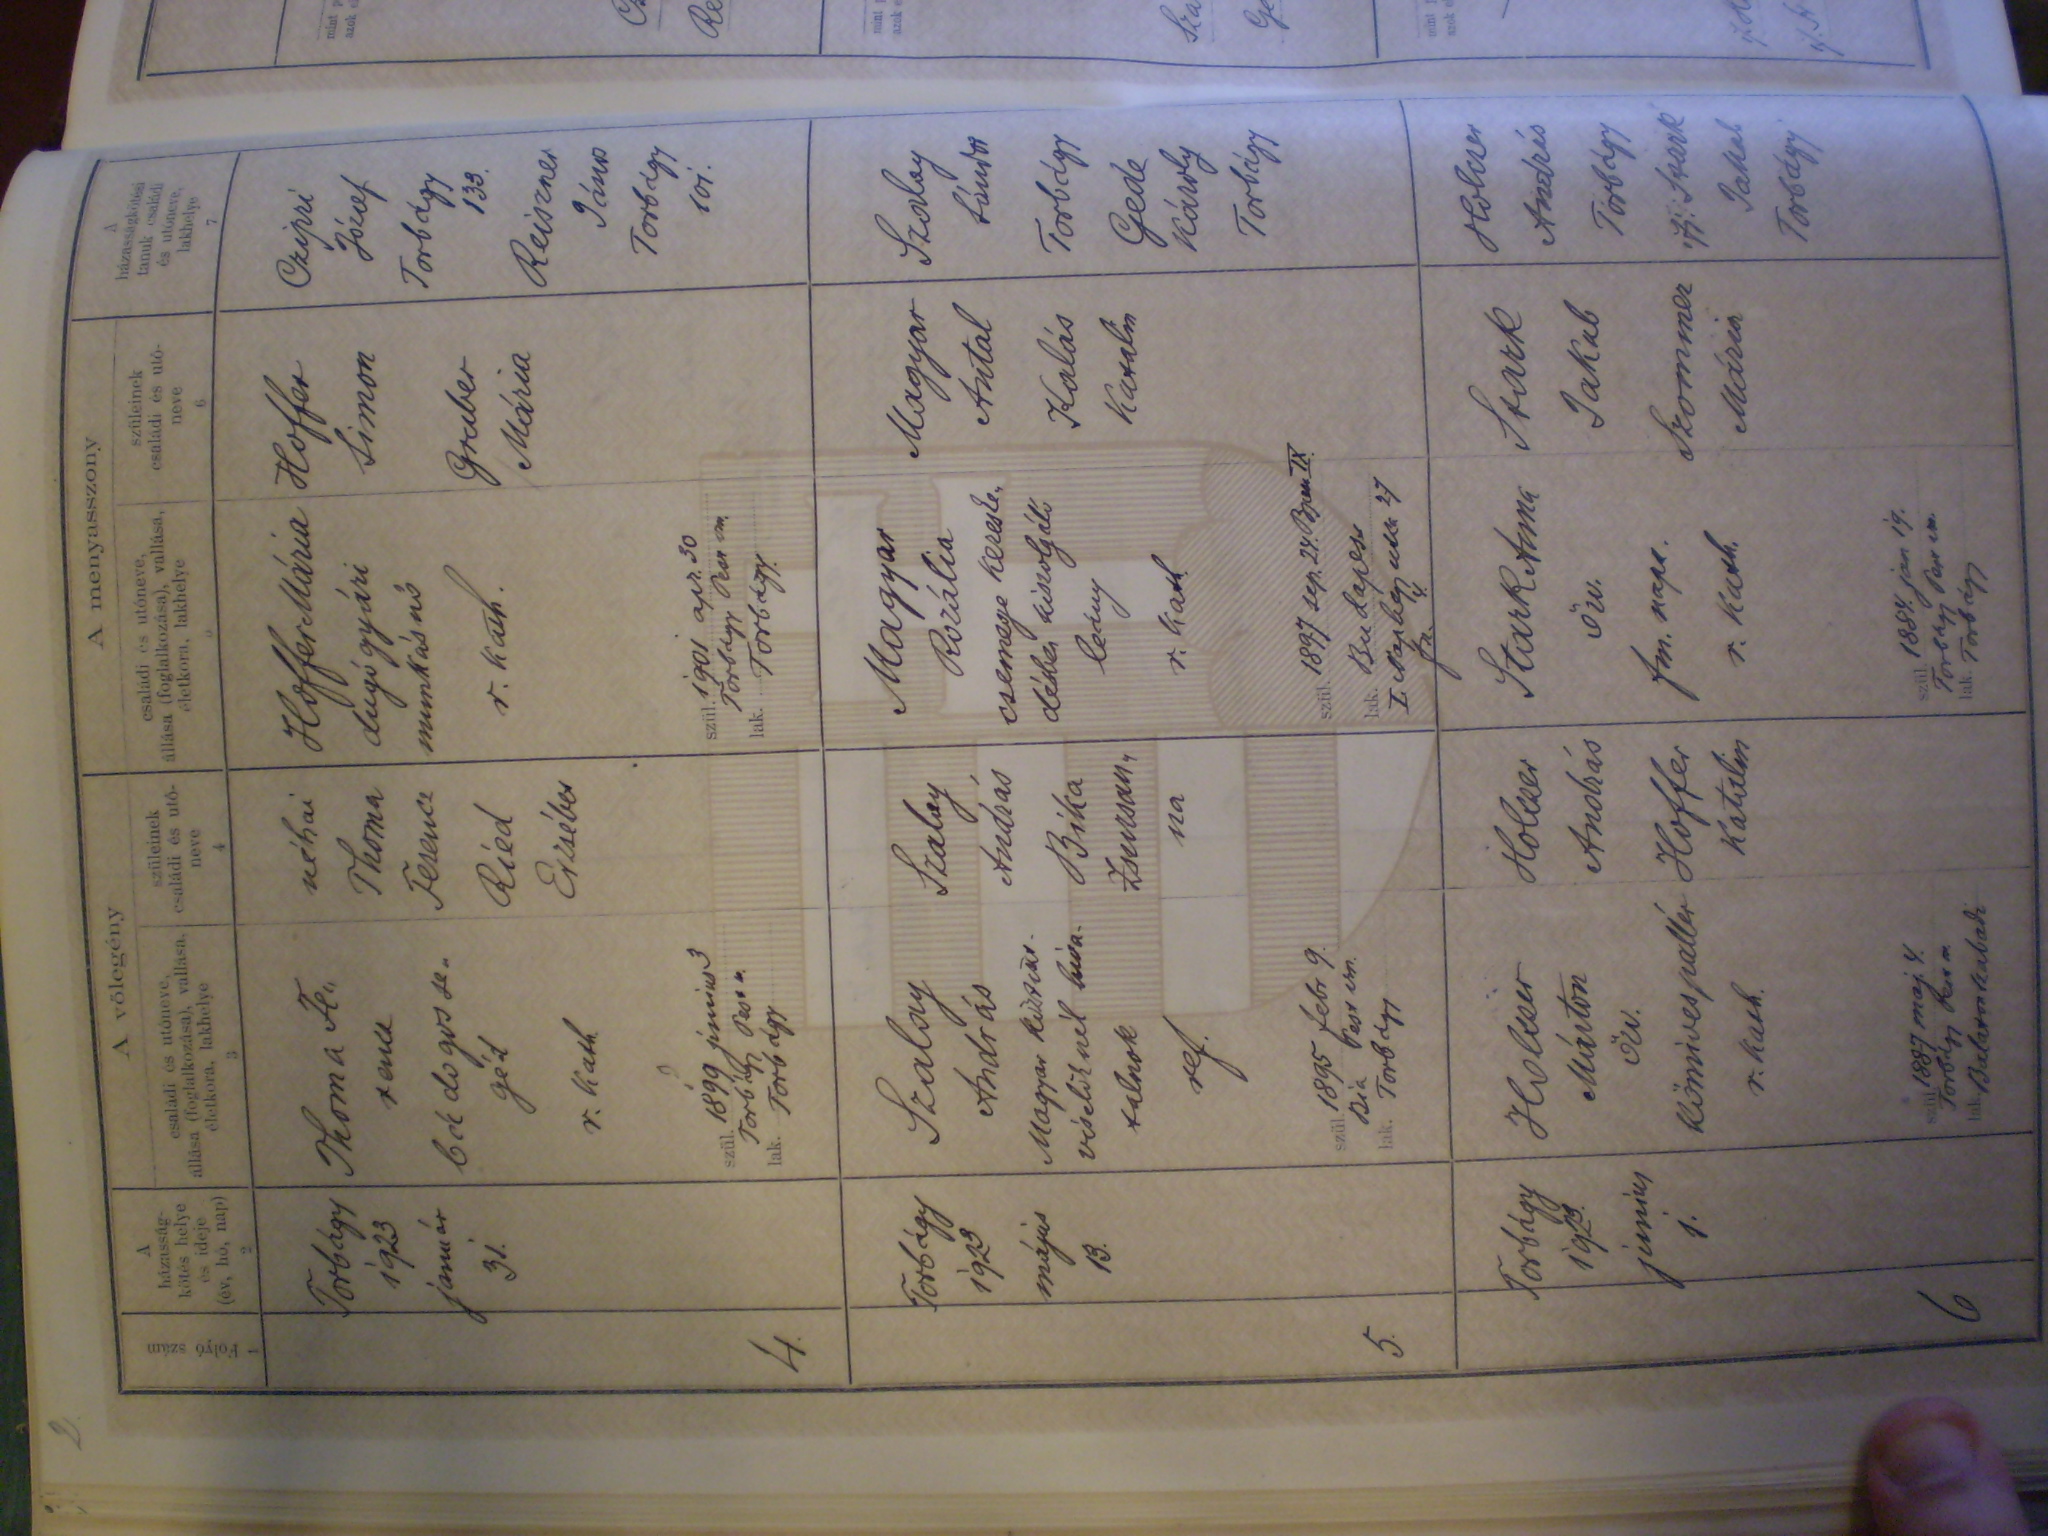 2
A völegény
A menyasszony
Folyó szám
1
A
házasság-
kötés helye
és ideje
(év, hó, nap)
2
családi és utóneve,
állása (foglalkozása), vallása,
életkora, lakhelye
3
szüleinek
családi és utó-
neve
4
családi és utóneve,
állása (foglalkozása), vallása,
életkora, lakhelye
5
szüleinek
családi és utó-
neve
6
A
házasságkötési
tanuk családi
és utóneve,
lakhelye
7
4.
Torbágy
1923
január
31.
Thoma Fe„
renc
r. kath
szül. 1899 június 3
Torbágy Pest m.
lak. Torbágy
néhai
Thoma
Ferencz
Ried
Erzsébet
Hoffer Mária
dugógyári
munkásnő
r. kath.
szül. 1901 apr. 30
Torbágy Pest m.
lak. Torbágy
Hoffer
Simon
Gruber
Mária
Czipri
József
Torbágy
133.
Reiszner
János
Torbágy
101.
5.
Torbágy
1923
május
13.
Szalay
András
Magyar
viselőknél
ref.
szül. 1895 febr 9.
Bia Pest vm.
lak. Torbágy
Szalay
András
Bika
Zsuzsan„
na
Magyar
Rozália
csemege kereske„
désben kiszolgáló
leány
r. kath.
szül. 1897 sep. 24.
lak. Budapest
27
Magyar
Antal
Kalás
Katalin
Szalay
Sándor
Torbágy
Gede
Károly
Torbágy
6
Torbágy
1923.
június
1.
Holczer
Márton
öv.
kőmives pallér
r. kath.
szül. 1887 maj. 4.
Torbágy Pest m
lak. Balatonszabadi
Holczer
András
Hoffer
Katalin
Stark Anna
öv.
fm. naps.
r. kath.
szül. 1884. jan 19.
Torbágy Pest vm.
lak. Torbágy
Stark
Jakab
Szommer
Mária
Holczer
András
Torbágy
ifj. Stark
Jakab
Torbágy